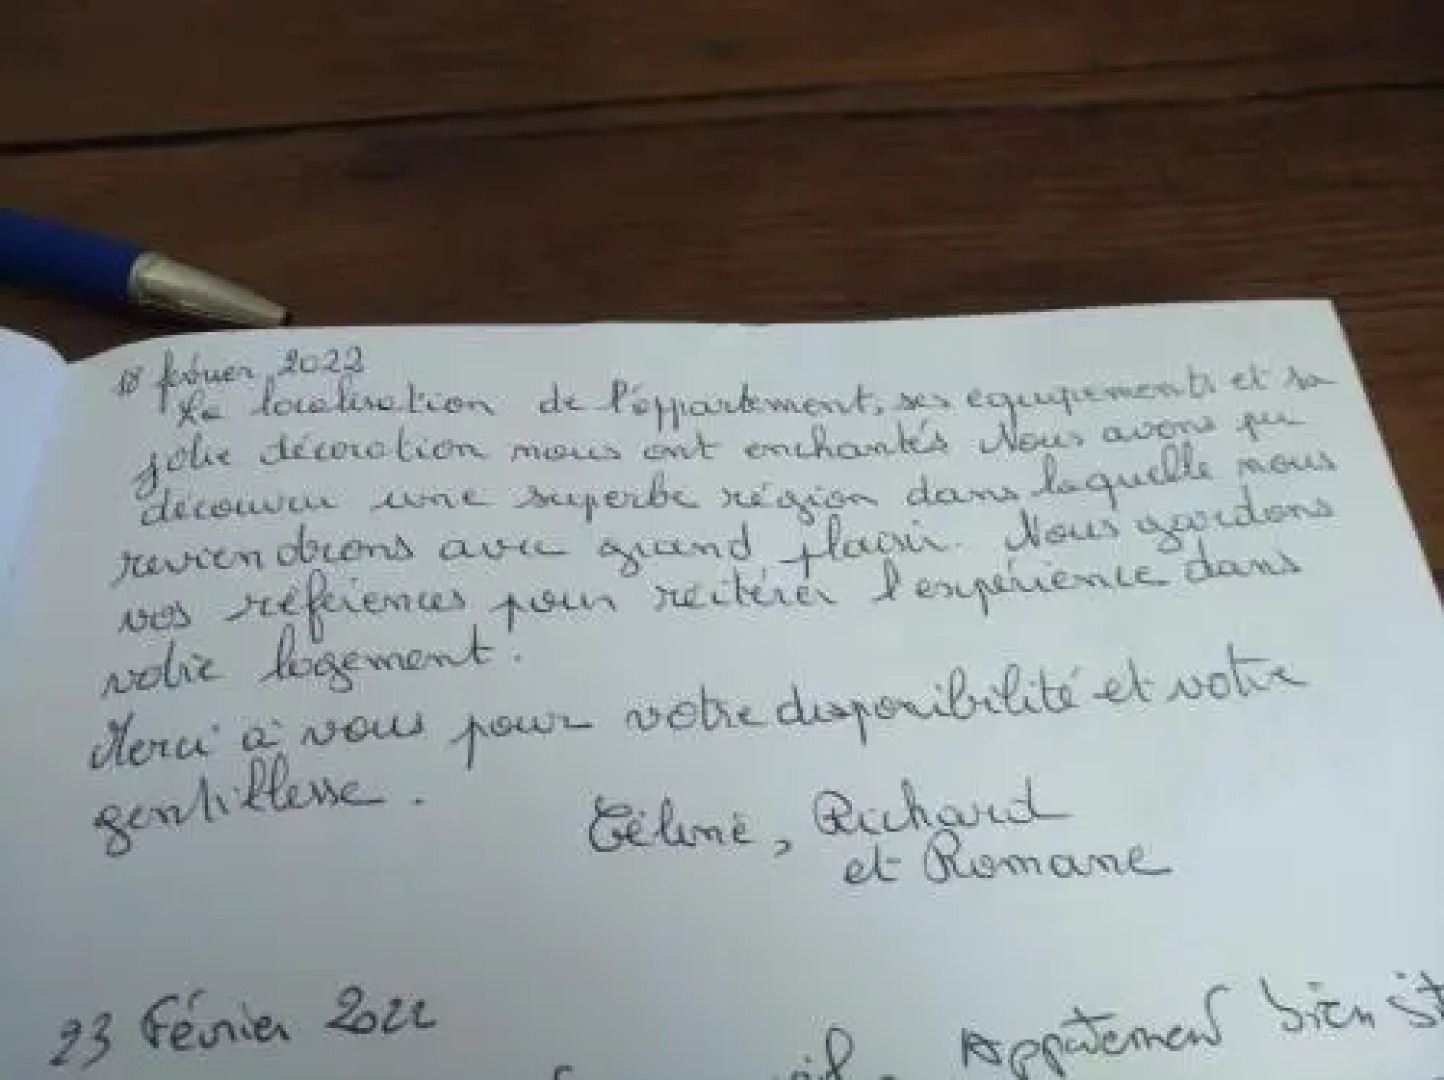 18 février 2022
La localisation de l'appartement, ses équipements et sa
jolie décoration nous ont enchantés Nous avons pu
découvrir une superbe région dans laquelle nous
reviendrons avec grand plaisir. Nous gardons
vos références pour réitérer l'expérience dans
votre logement.
Merci à vous pour votre disponibilité et votre
gentillesse.
Céline, Richard
et Romane
23 Février 2022
Appartement bien